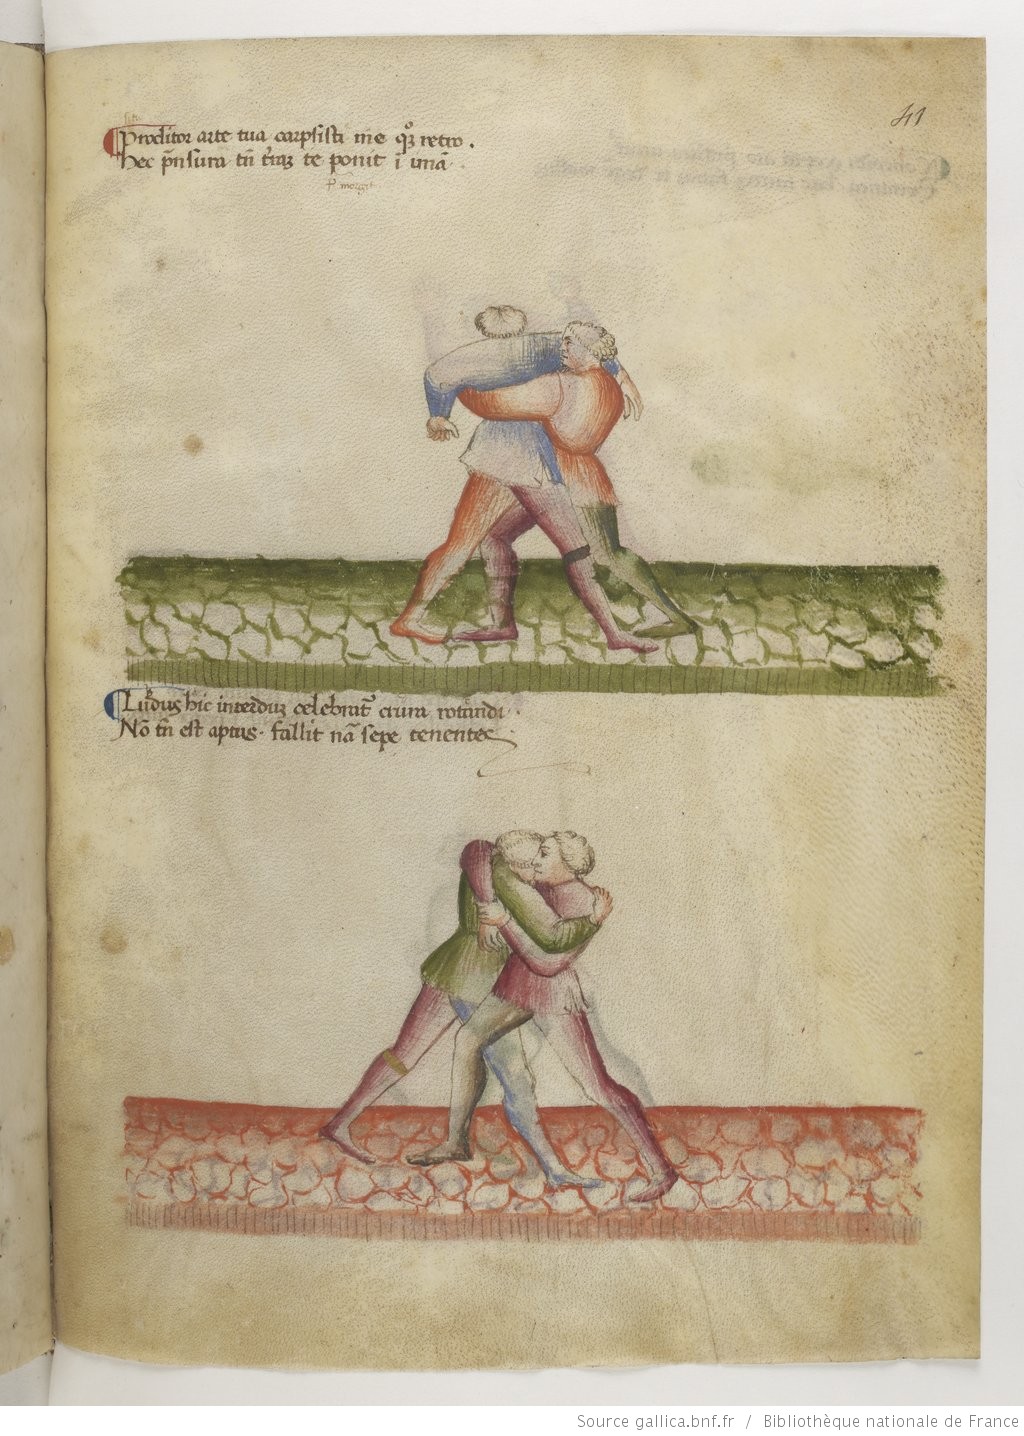 41
Proditor arte tua carpsisti me qꝫ retro.
Hec p̃nsura tñ t̃raꝫ te ponit ĩ imã.
Ludus hic interduꝫ celebrat̃ crura rotandi.
Nõ tñ est aptus. fallit nã sepe tenentes
Source gallica.bnf.fr / Bibliothèque nationale de France